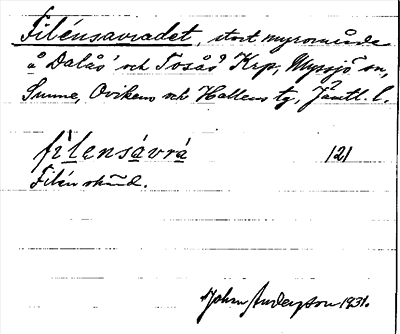 Filénsavradet, stort myrområde
å Dalås' och Tosås' Krp, Myssjö sn,
Sunne, Ovikens och Hallens tg, Jämtl. l.
filensávrá 121
Filén skind.
John Anderzson 1931.